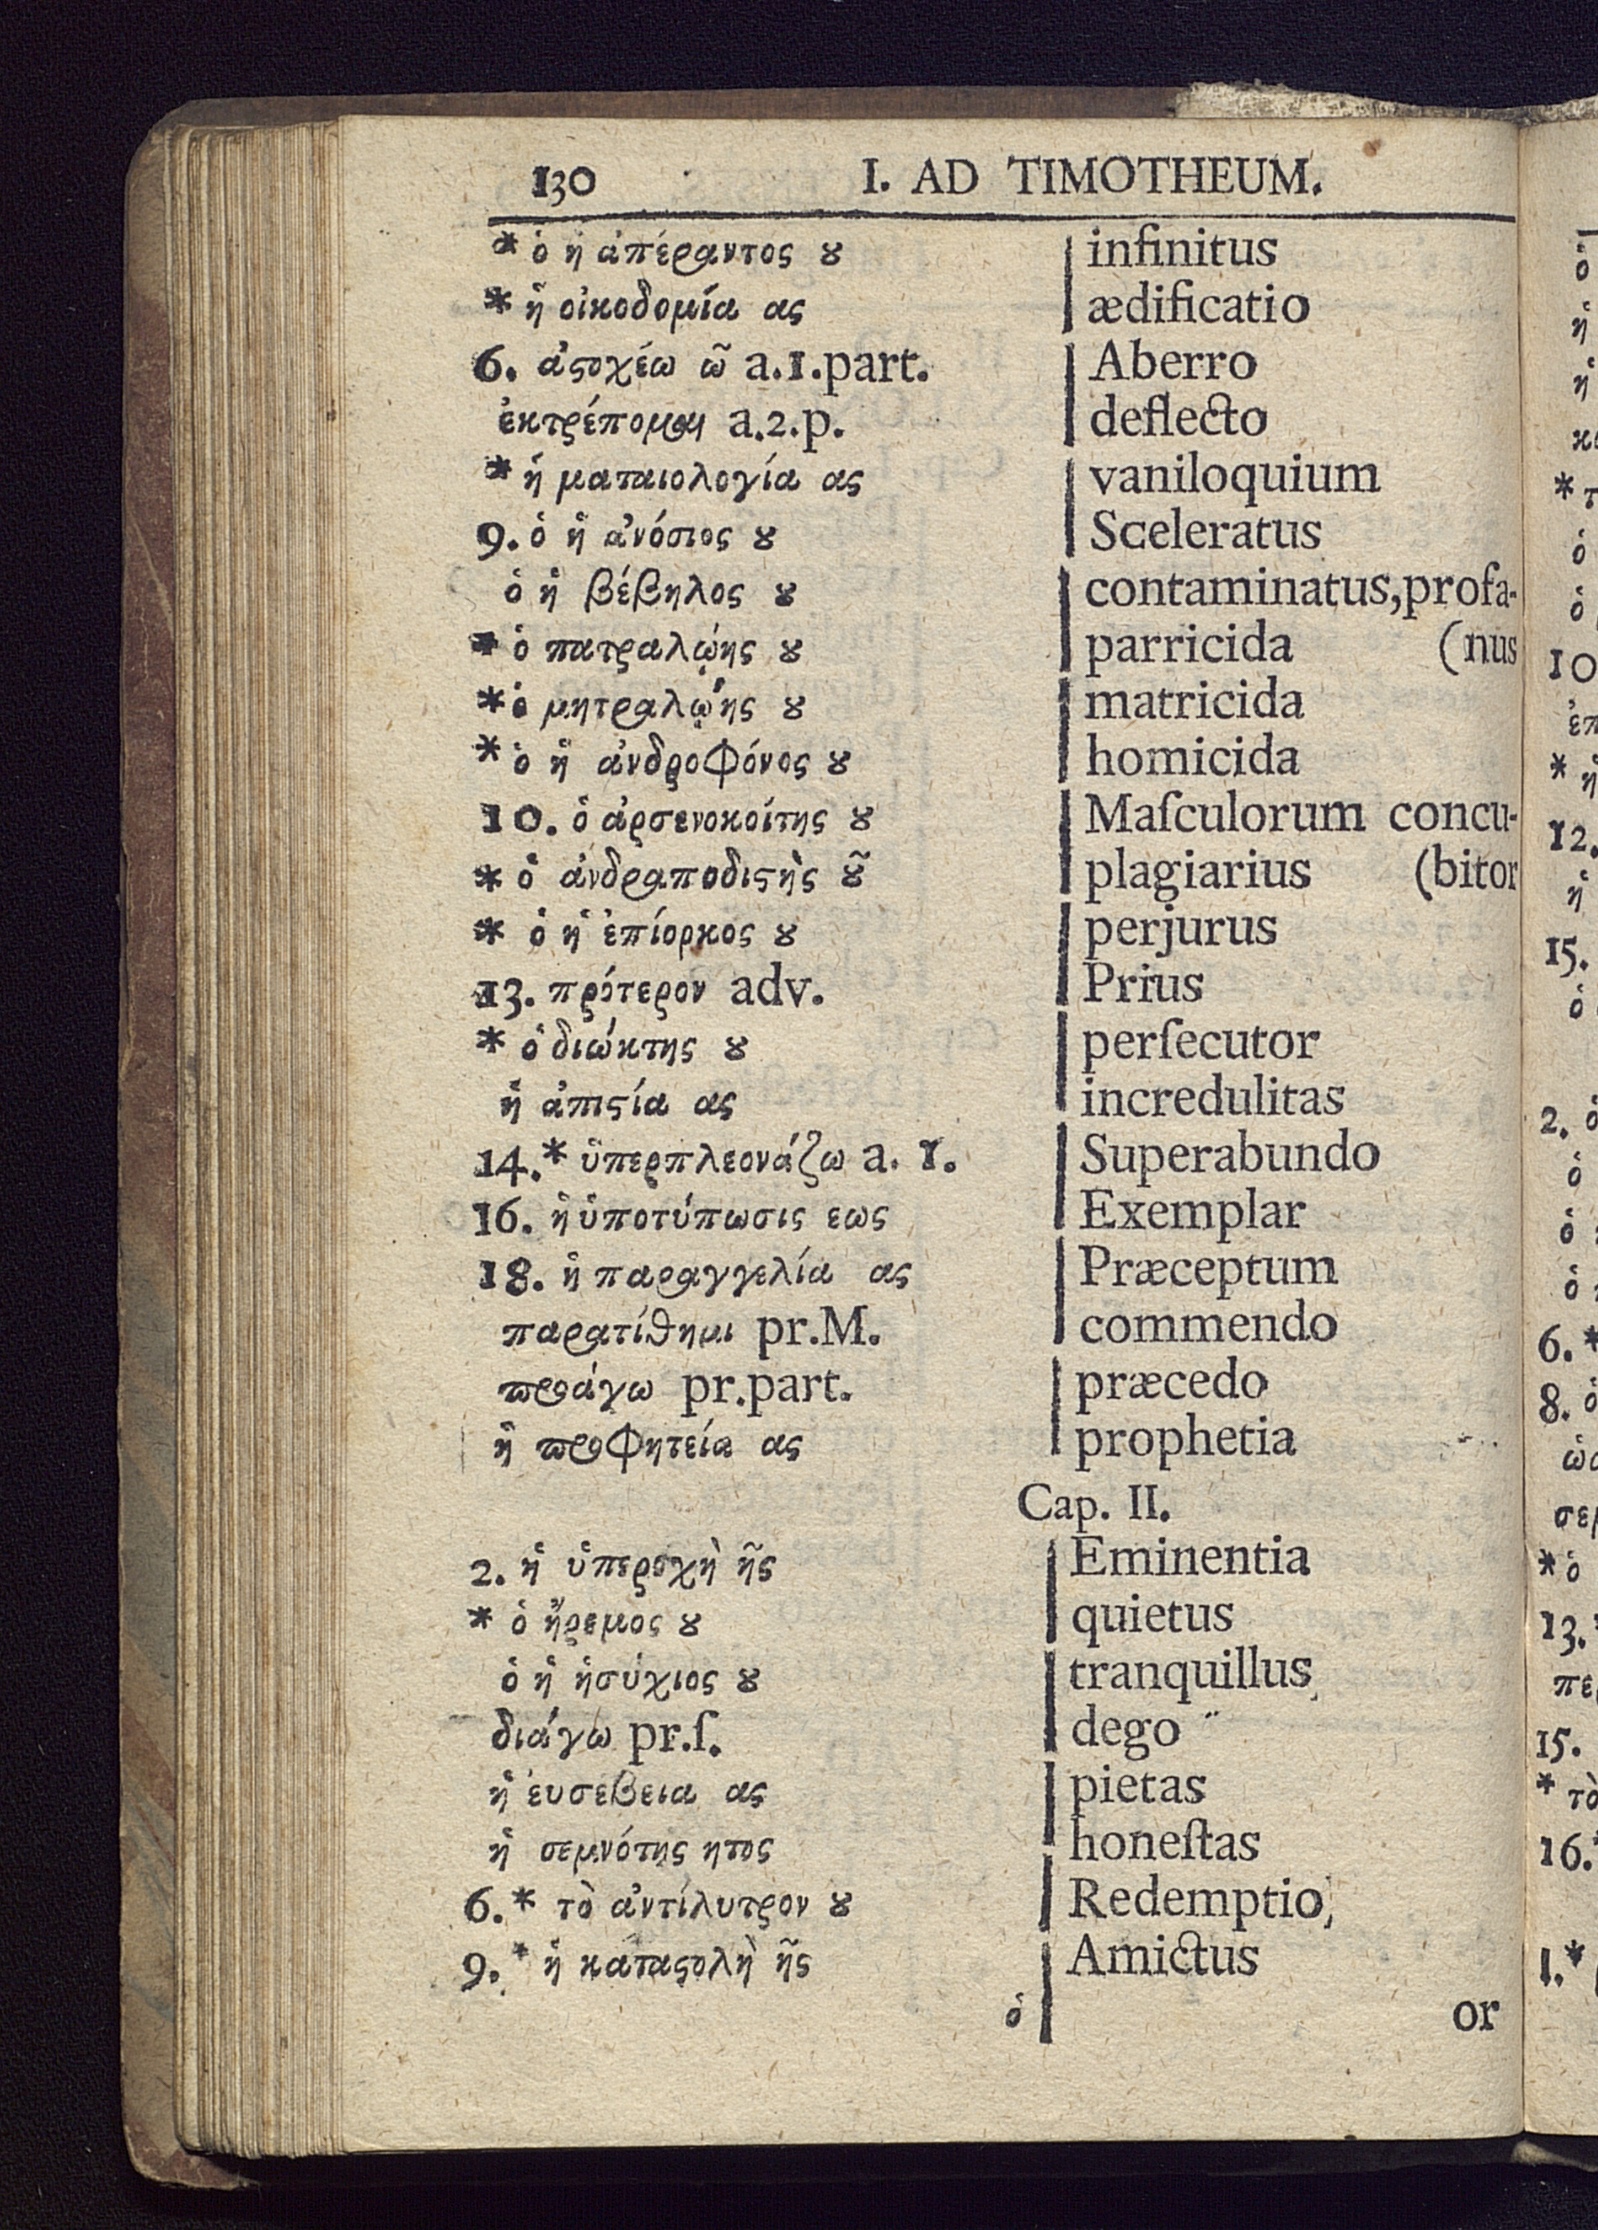 130 I. AD TIMOTHEUM.
* ὁ ἡ ἀπέραντος ȣ infinitus
* ἡ οἰκοδομία ας ædificatio
6. ἀϛοχέω ῶ a.1.part. Aberro
ἐκτρέπομαι a.2.p. deflecto
* ἡ ματαιολογία ας vaniloquium
9. ὁ ἡ ἀνόσιος ȣ Sceleratus
ὁ ἡ βέβηλος ȣ contaminatus,profa-
* ὁ πατραλῴης ȣ parricida (nus
* ὁ μητραλῴης ȣ matricida
* ὁ ἡ ἀνδροφόνος ȣ homicida
10. ὁ ἀρσενοκοίτης ȣ Maſculorum concu-
* ὁ ἀνδραποδιϛὴς ȣ͂ plagiarius (bitor
* ὁ ἡ ἐπίορκος ȣ perjurus
13. πρότερον adv. Prius
* ὁ διώκτης ȣ perſecutor
ἡ ἀπιϛία ας incredulitas
14.* ὑπερπλεονάζω a. 1. Superabundo
16. ἡ ὑποτύπωσις εως Exemplar
18. ἡ παραγγελία ας Præceptum
παρατίθημι pr.M. commendo
προάγω pr.part. præcedo
ἡ προφητεία ας prophetia
Cap. II.
2. ἡ ὑπεροχὴ ῆς Eminentia
* ὁ ἤρεμος ȣ quietus
ὁ ἡ ἡσύχιος ȣ tranquillus
διάγω pr.ſ. dego
ἡ ἐυσέβεια ας pietas
ἡ σεμνότης ητος honeſtas
6.* τὸ ἀντίλυτρον ȣ Redemptio
9.* ἡ καταϛολὴ ῆς Amictus
ὁ or